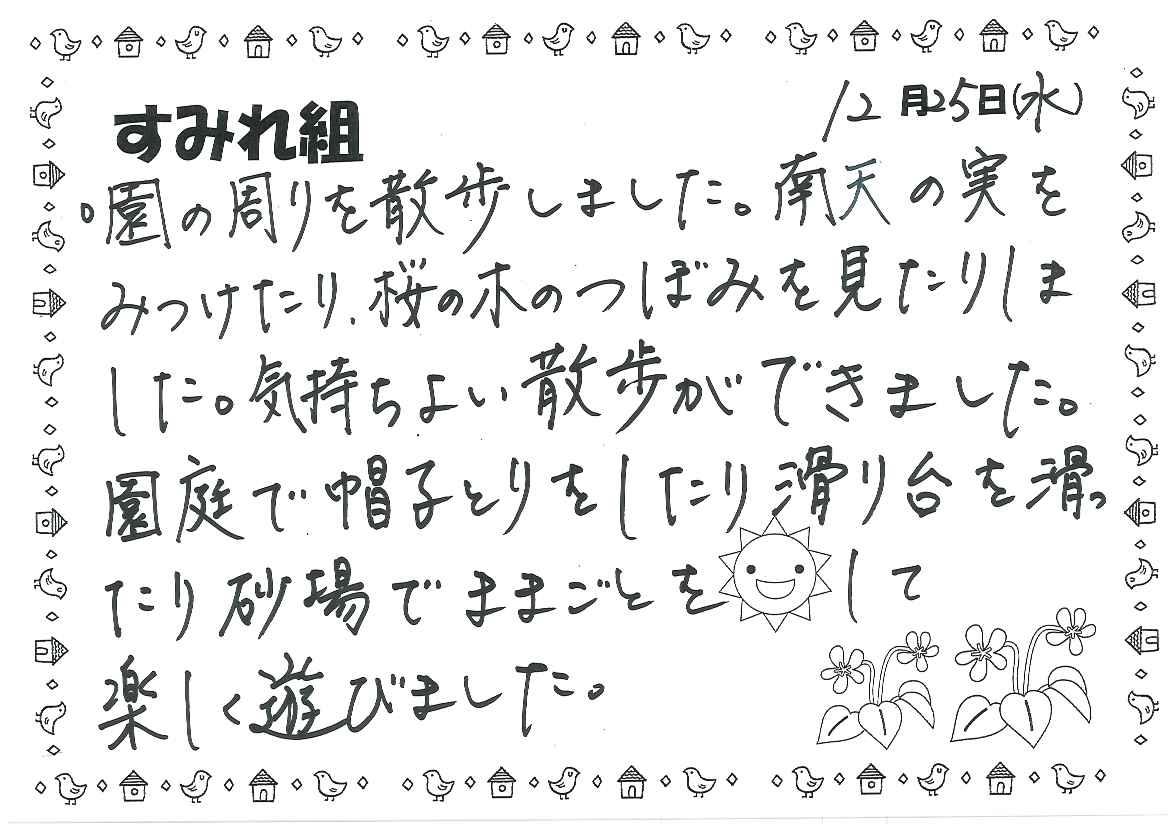 すみれ組
12月25日(水)
。園の周りを散歩しました。南天の実を
みつけたり、桜の木のつぼみを見たりしま
した。気持ちよい散歩ができました。
園庭で帽子とりをしたり滑り台を滑っ
たり砂場でままごとをして
楽しく遊びました。